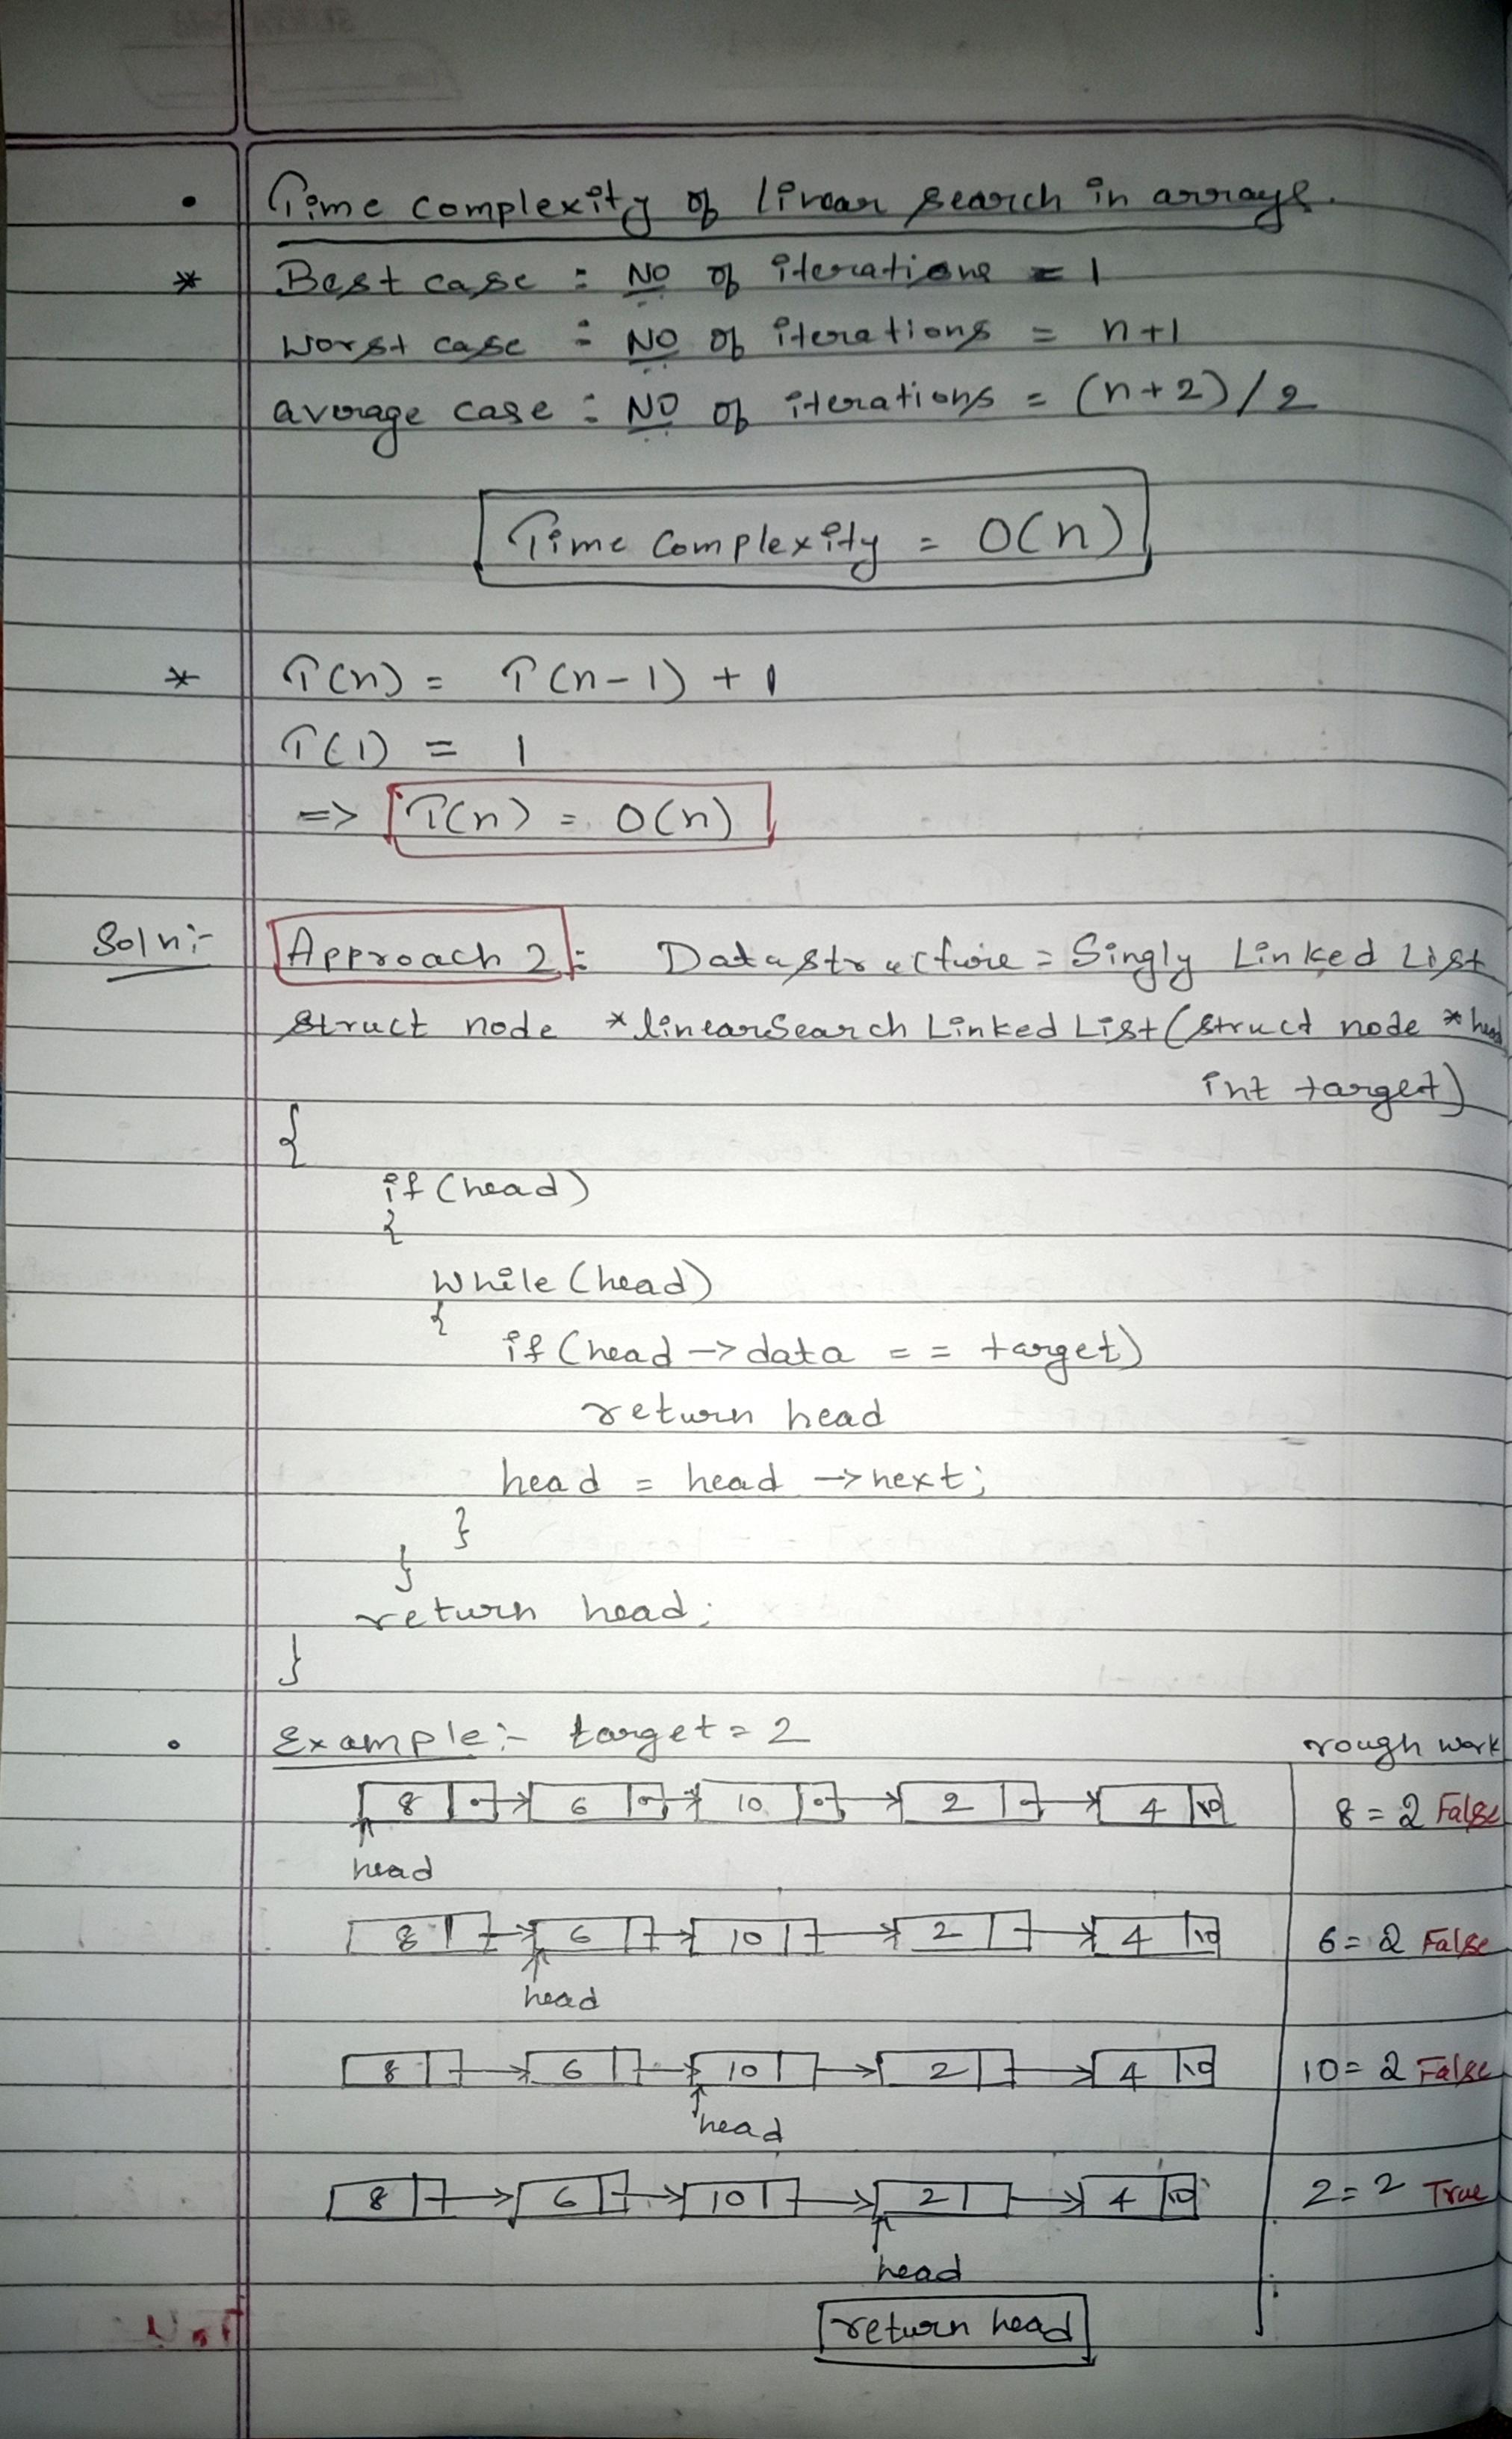 • Time complexity of linear search in arrays.
* Best case : No of iterations = 1
worst case : No of iterations = n+1
average case : No of iterations = (n+2)/2
Time Complexity = O(n)
* T(n) = T(n-1) + 1
T(1) = 1
=> T(n) = O(n)
Soln:- Approach 2 : Datastructure = Singly Linked List
struct node *linearSearch Linked List(struct node *head
int target)
{
if (head)
{
while (head)
{
if (head -> data == target)
return head
head = head -> next;
}
}
return head;
}
• Example:- target = 2 rough work
8 6 10 2 4 8 = 2 False
head
8 6 10 2 4 6 = 2 False
head
8 6 10 2 4 10 = 2 False
head
8 6 10 2 4 2 = 2 True
head
return head